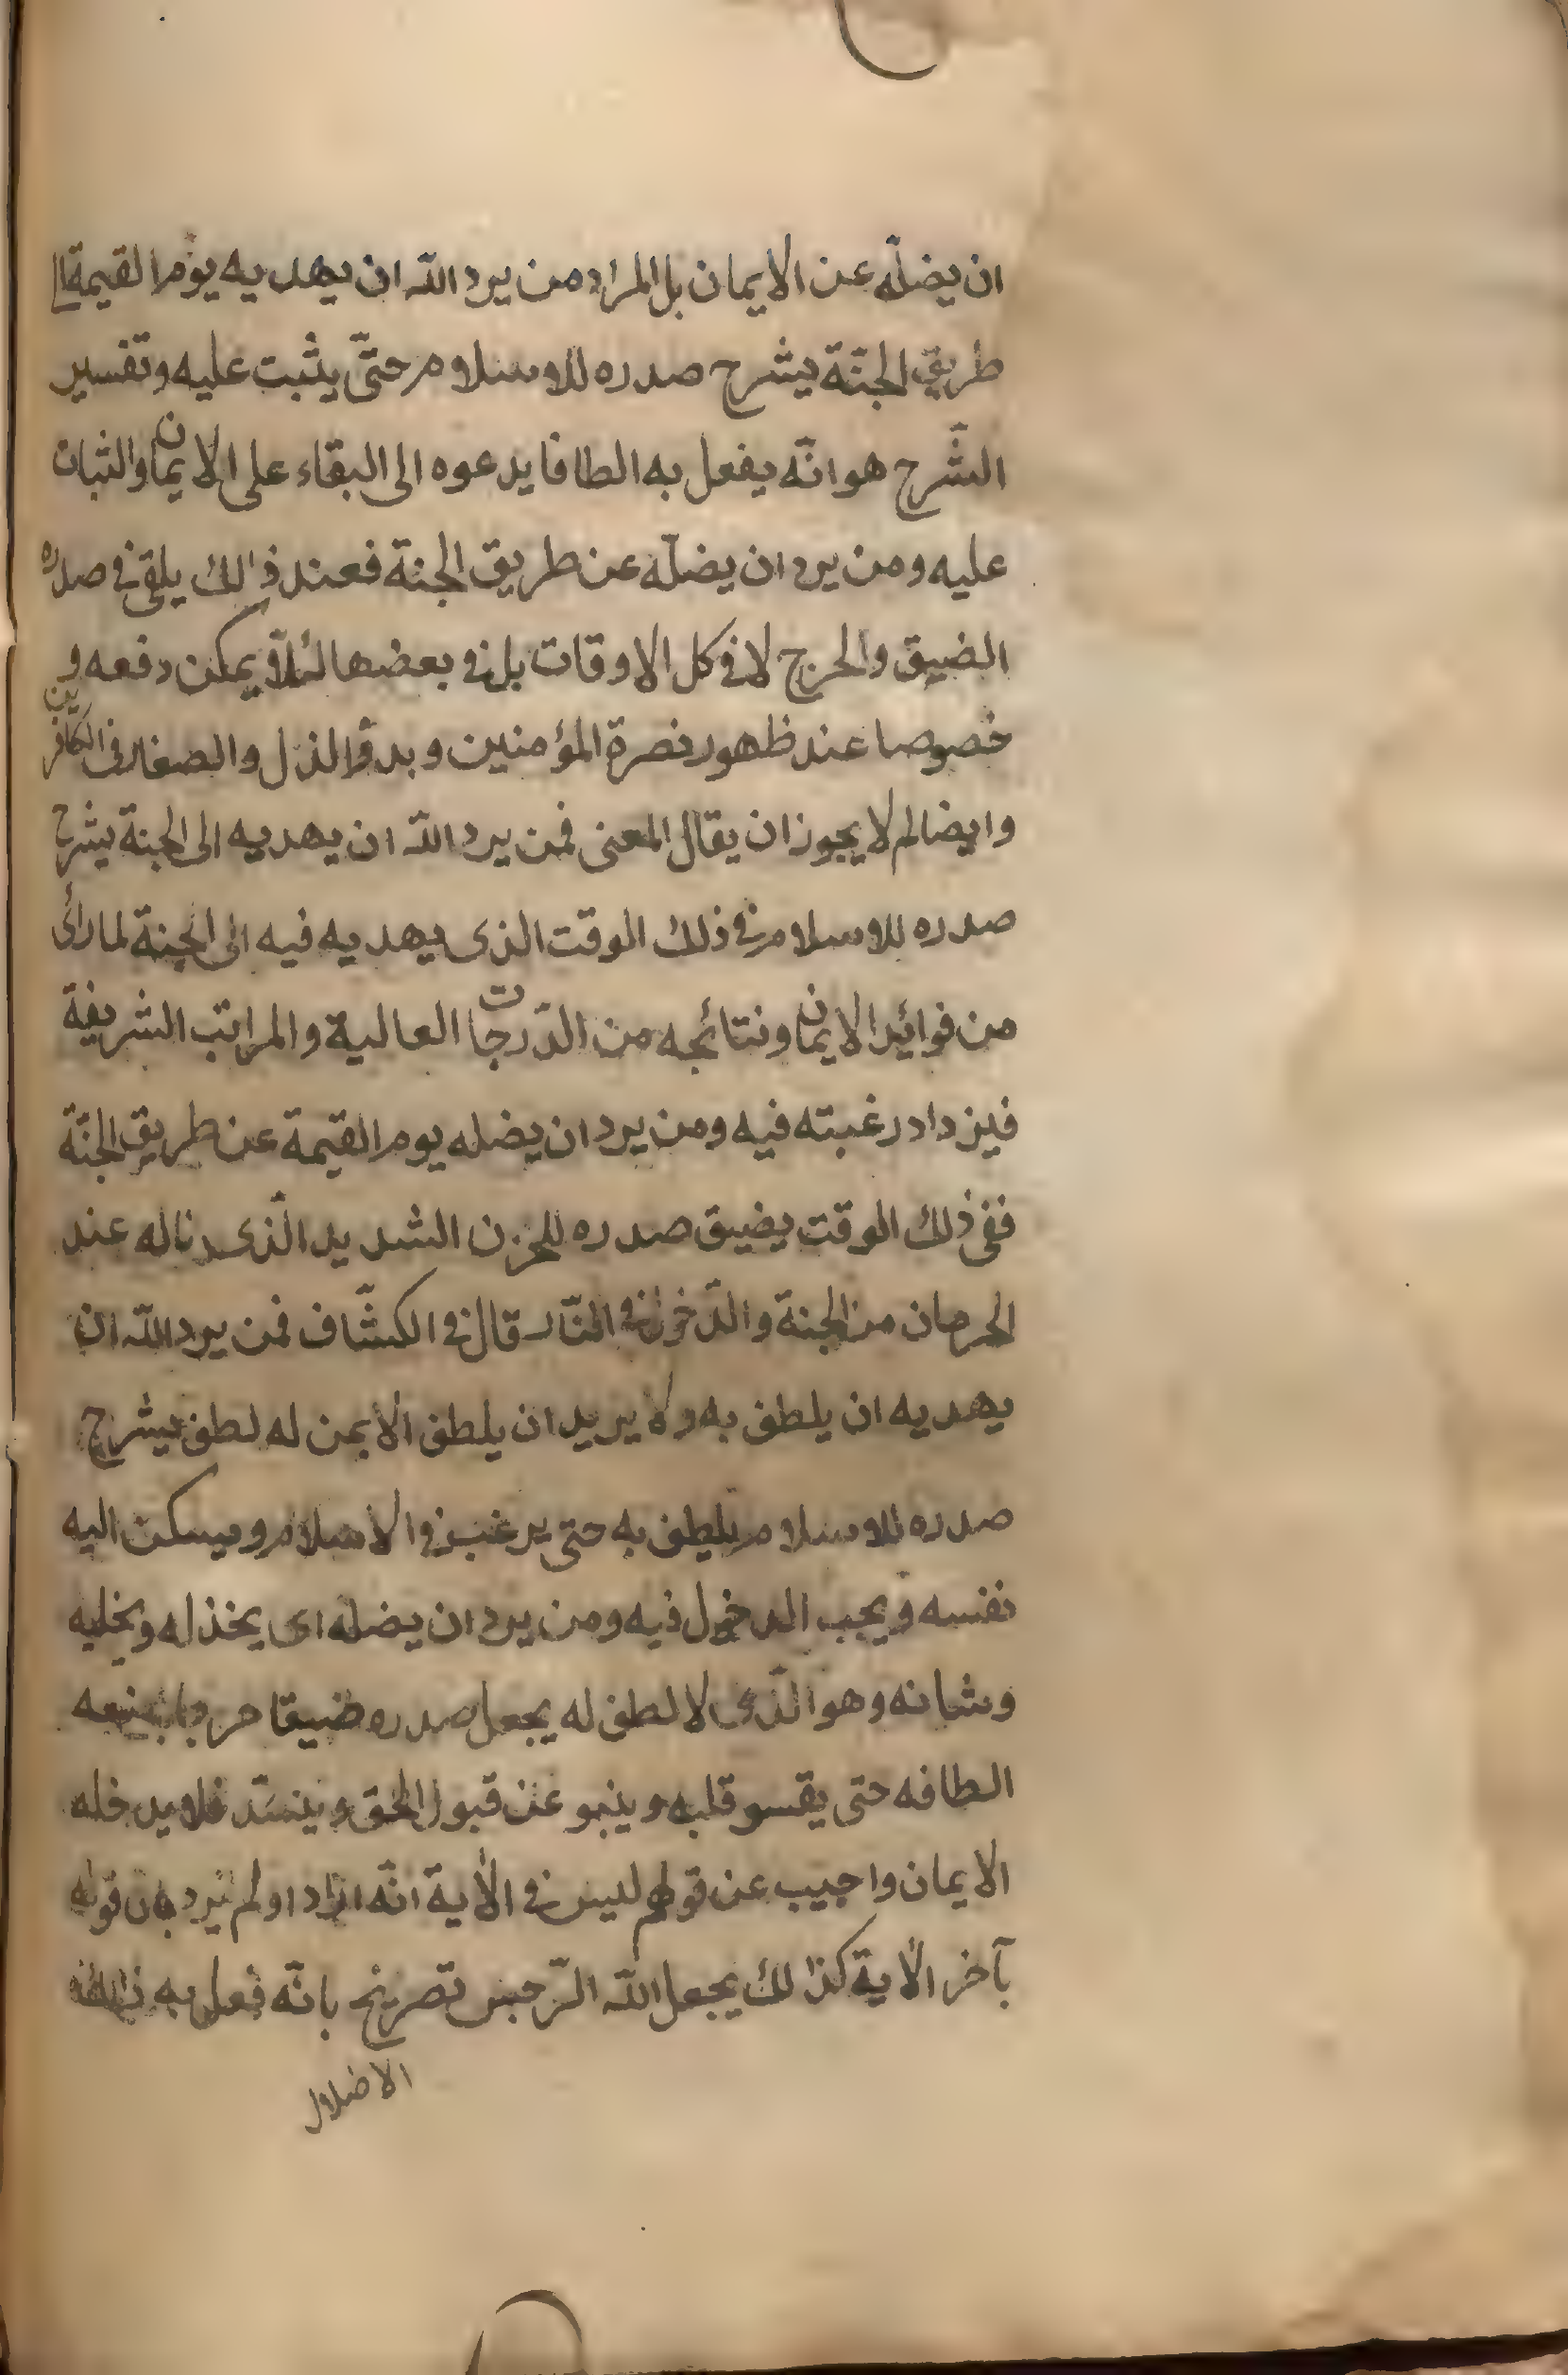 ان يضلّه عن الايمان بل المراد من يرد اللّه ان يهديه يوم القيمة الى
طريق الجنّة يشرح صدره للاسلام حتّى يثبت عليه وتفسير
الشّرح هو انّه يفعل به الطافا يدعوه الى البقاء على الايمان والثبات
عليه ومن يرد ان يضلّه عن طريق الجنة فعند ذالك يلقى في صدره
الضيق والحرج لا في كل الاوقات بل في بعضها لئلّا يمكن دفعه و
خصوصا عند ظهور نصرة المؤمنين وبدو الذل والصغار فى الكافرين
وايضا لم لا يجوز ان يقال المعنى فمن يرد اللّه ان يهديه الى الجنة يشرح
صدره للاسلام في ذلك الوقت الذى يهديه فيه الى الجنة لما رأى
من فوائد الايمان ونتائجه من الدّرجات العالية والمراتب الشريفة
فيزداد رغبته فيه ومن يرد ان يضله يوم القيمة عن طريق الجنّة
ففى ذلك الوقت يضيق صدره للحزن الشديد الّذى ناله عند
الحرمان من الجنة والدّخول في النّار قال في الكشّاف فمن يرد اللّه ان
يهديه ان يلطف به ولا يريد ان يلطف الا بمن له لطف يشرح
صدره للاسلام يلطف به حتى يرغب في الاسلام ويسكن اليه
نفسه ويحب الدخول فيه ومن يرد ان يضله اى يخذله ويخليه
وشانه وهو الذّى لا لطف له يجعل صدره ضيقا حرجا يمنعه
الطافه حتى يقسو قلبه وينبو عن قبول الحق وينسّد فلا يدخله
الايمان واجيب عن قولهم ليس في الآية انّه اراد او لم يرد بان قوله
بآخر الآية كذالك يجعل اللّه الرّجس تصريح بانّه فعل به ذلك
الاضلال